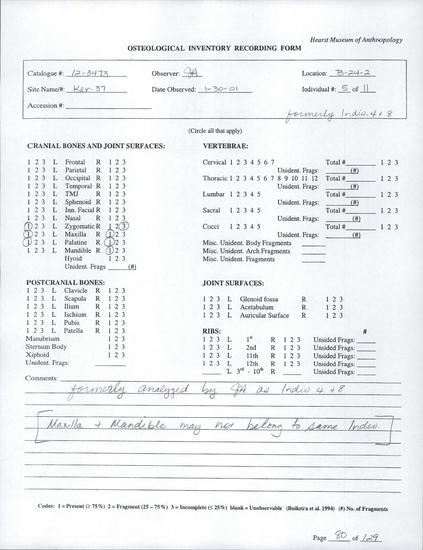 Hearst Museum of Anthropology
OSTEOLOGICAL INVENTORY RECORDING FORM
Catalogue #: 12-3473 Observer: JA Location: B-24-2
Site Name/#: Ker-37 Date Observed: 1-30-01 Individual #: 5 of 11
Accession #:
formerly Indiv. 4 + 8
(Circle all that apply)
CRANIAL BONES AND JOINT SURFACES: VERTEBRAE:
1 2 3 L Frontal R 1 2 3 Cervical 1 2 3 4 5 6 7 Total # 1 2 3
1 2 3 L Parietal R 1 2 3 Unident. Frags: (#)
1 2 3 L Occipital R 1 2 3 Thoracic 1 2 3 4 5 6 7 8 9 10 11 12 Total # 1 2 3
1 2 3 L Temporal R 1 2 3 Unident. Frags: (#)
1 2 3 L TMJ R 1 2 3 Lumbar 1 2 3 4 5 Total # 1 2 3
1 2 3 L Sphenoid R 1 2 3 Unident. Frags: (#)
1 2 3 L Inn. Facial R 1 2 3 Sacral 1 2 3 4 5 Total # 1 2 3
1 2 3 L Nasal R 1 2 3 Unident. Frags: (#)
1 2 3 L Zygomatic R 1 2 3 Cocci 1 2 3 4 5 Total # 1 2 3
1 2 3 L Maxilla R 1 2 3 Unident. Frags: (#)
1 2 3 L Palatine R 1 2 3 Misc. Unident. Body Fragments
1 2 3 L Mandible R 1 2 3 Misc. Unident. Arch Fragments
Hyoid 1 2 3 Misc. Unident. Fragments
Unident. Frags (#)
POSTCRANIAL BONES: JOINT SURFACES:
1 2 3 L Clavicle R 1 2 3
1 2 3 L Scapula R 1 2 3 1 2 3 L Glenoid fossa R 1 2 3
1 2 3 L Ilium R 1 2 3 1 2 3 L Acetabulum R 1 2 3
1 2 3 L Ischium R 1 2 3 1 2 3 L Auricular Surface R 1 2 3
1 2 3 L Pubis R 1 2 3
1 2 3 L Patella R 1 2 3 RIBS: #
Manubrium 1 2 3 1 2 3 L 1st R 1 2 3 Unsided Frags:
Sternum Body 1 2 3 1 2 3 L 2nd R 1 2 3 Unsided Frags:
Xiphoid 1 2 3 1 2 3 L 11th R 1 2 3 Unsided Frags:
Unident. Frags: 1 2 3 L 12th R 1 2 3 Unsided Frags:
L 3rd - 10th R Unsided Frags:
Comments:
formerly analyzed by JA as Indiv 4 + 8
[Maxilla + Mandible may not belong to same Indiv.]
Codes: 1 = Present (≥ 75%) 2 = Fragment (25 – 75%) 3 = Incomplete (≤ 25%) blank = Unobservable (Buikstra et al. 1994) (#) No. of Fragments
Page 80 of 129